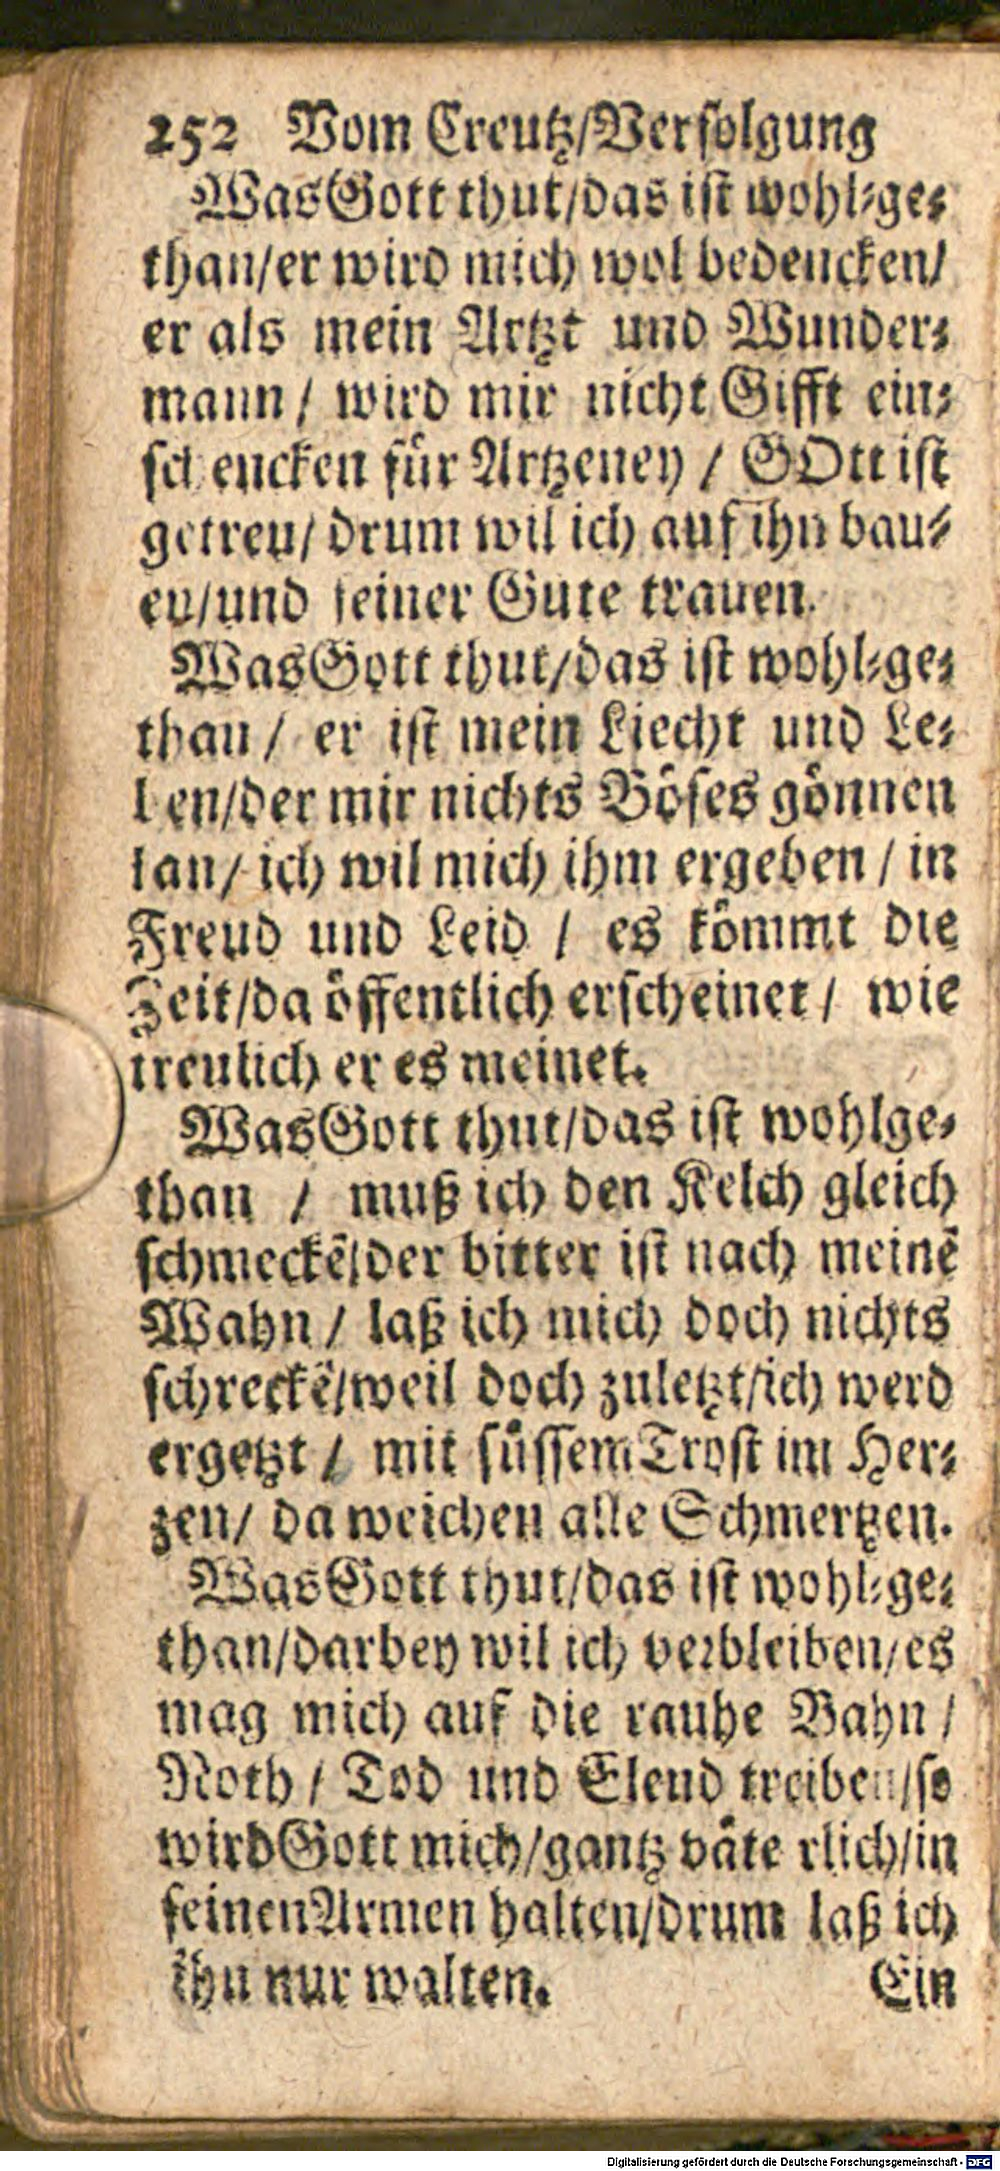 252 Vom Creutz/Verfolgung
Was Gott thut/das ist wohl-ge-
than/er wird mich wol bedencken/
er als mein Artzt und Wunder-
mann / wird mir nicht Gifft ein-
schencken für Artzeney / GOtt ist
getreu/ drum wil ich auf ihn bau-
en/und seiner Güte trauen.
Was Gott thut/das ist wohl-ge-
than / er ist mein Liecht und Le-
ben/der mir nichts Böses gönnen
kan/ ich wil mich ihm ergeben / in
Freud und Leid / es kömmt die
Zeit/da öffentlich erscheinet / wie
treulich er es meinet.
Was Gott thut/das ist wohlge-
than / muß ich den Kelch gleich
schmeckẽ/der bitter ist nach meinẽ
Wahn / laß ich mich doch nichts
schreckẽ/weil doch zuletzt/ich werd
ergetzt / mit süssem Trost im Her-
zen/ da weichen alle Schmertzen.
Was Gott thut/das ist wohl-ge-
than/darbey wil ich verbleiben/es
mag mich auf die rauhe Bahn /
Noth / Tod und Elend treiben/so
wird Gott mich/gantz väte rlich/in
seinen Armen halten/drum laß ich
ihn nur walten. Ein
Digitalisierung gefördert durch die Deutsche Forschungsgemeinschaft - DFG